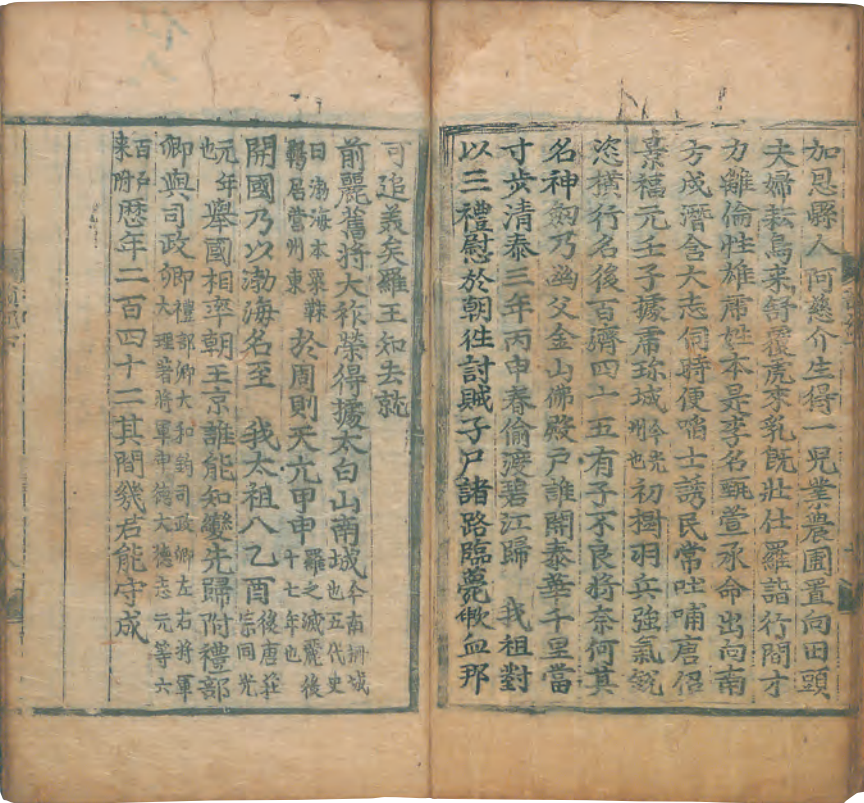 加恩縣人阿慈介生得一兒業農圃置向田頭
夫婦耘鳥來舒覆虎來乳旣壯仕羅詣行間才
力離倫性雄席姓本是李名甄萱承命出向南
方成潛含大志伺時便啗士誘民常吐哺唐侶
景福元壬子據席珎城今光州也初樹羽兵強氣銳
恣橫行名後百濟四十五有子不良將奈何其
名神劔乃幽父金山佛殿戶誰開泰華千里當
寸步清泰三年丙申春偷渡碧江歸 我祖對
以三禮慰於朝徃討賊子尸諸路臨薨血那
可追義矣羅王知去就
前麗舊將大祚榮得據太白山南城今南柵城也五代史
曰渤海本粟靺鞨居營州東於周則天元甲申羅之滅麗後十七年也
開國乃以渤海名至 我太祖八乙酉後唐莊宗同光
元年也舉國相率朝王京誰能知變先歸附禮部
卿與司政卿禮部卿大和鈞司政卿左右將軍大理著將軍申德大德志元等六
百戶來附歷年二百四十二其間幾君能守成